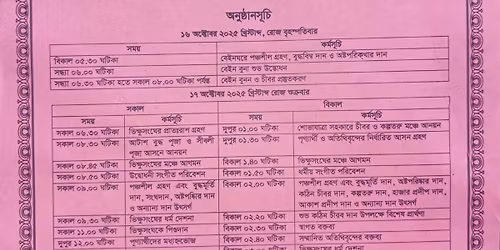 অনুষ্ঠানসূচি
১৬ অক্টোবর ২০২৫ খ্রিস্টাব্দ, রোজ বৃহস্পতিবার
সময় কর্মসূচি
বিকাল ০৫.৩০ ঘটিকা বেইনঘরে পঞ্চশীল গ্রহণ, বুদ্ধবিম্ব দান ও অষ্টপরিষ্কার দান
সন্ধ্যা ০৬.০০ ঘটিকা বেইন বুনা শুভ উদ্বোধন
সন্ধ্যা ০৬.৩০ ঘটিকা হতে সকাল ০৮.০০ ঘটিকা পর্যন্ত বেইন বুনন ও চীবর প্রস্তুতকরণ
১৭ অক্টোবর ২০২৫ খ্রিস্টাব্দ রোজ শুক্রবার
সকাল বিকাল
সময় কর্মসূচি সময় কর্মসূচি
সকাল ০৬.৩০ ঘটিকা ভিক্ষুসংঘের প্রাতরাশ গ্রহণ দুপুর ০১.০০ ঘটিকা শোভাযাত্রা সহকারে চীবর ও কল্পতরু মঞ্চে আনয়ন
সকাল ০৮.৩০ ঘটিকা আটাশ বুদ্ধ পূজা ও সীবলী দুপুর ০১.৩০ ঘটিকা পূণ্যার্থী ও অতিথিবৃন্দের নির্ধারিত আসন গ্রহণ
পূজা আসনে আনয়ন
সকাল ০৮.৪৫ ঘটিকা ভিক্ষুসংঘের মঞ্চে আগমন বিকাল ১.৪০ ঘটিকা ভিক্ষুসংঘের মঞ্চে আগমন
সকাল ০৮.৫০ ঘটিকা উদ্বোধনী সংগীত পরিবেশন বিকাল ০১.৫০ ঘটিকা ধর্মীয় সংগীত পরিবেশন
সকাল ০৯.০০ ঘটিকা পঞ্চশীল গ্রহণ এবং বুদ্ধমূর্তি বিকাল ০২.০০ ঘটিকা পঞ্চশীল গ্রহণ এবং বুদ্ধমূর্তি দান, অষ্টপরিষ্কার দান,
দান, সংঘদান, অষ্টপরিষ্কার দান কঠিন চীবর দান, কল্পতরু দান, হাজার প্রদীপ দান,
ও অন্যান্য দান উৎসর্গ আকাশ প্রদীপ দান ও অন্যান্য দান উৎসর্গ
সকাল ০৯.৩০ ঘটিকা ভিক্ষুসংঘের ধর্ম দেশনা বিকাল ০২.২০ ঘটিকা শুভ কঠিন চীবর দান উপলক্ষে বিশেষ প্রার্থণা
সকাল ১১.০০ ঘটিকা ভিক্ষুসংঘকে পিন্ডদান বিকাল ০২.৩০ ঘটিকা স্বাগত বক্তব্য
দুপুর ১২.০০ ঘটিকা পূণ্যার্থীদের মধ্যাহ্নভোজ বিকাল ০২.৪০ ঘটিকা সম্মানিত অতিথিবৃন্দের বক্তব্য